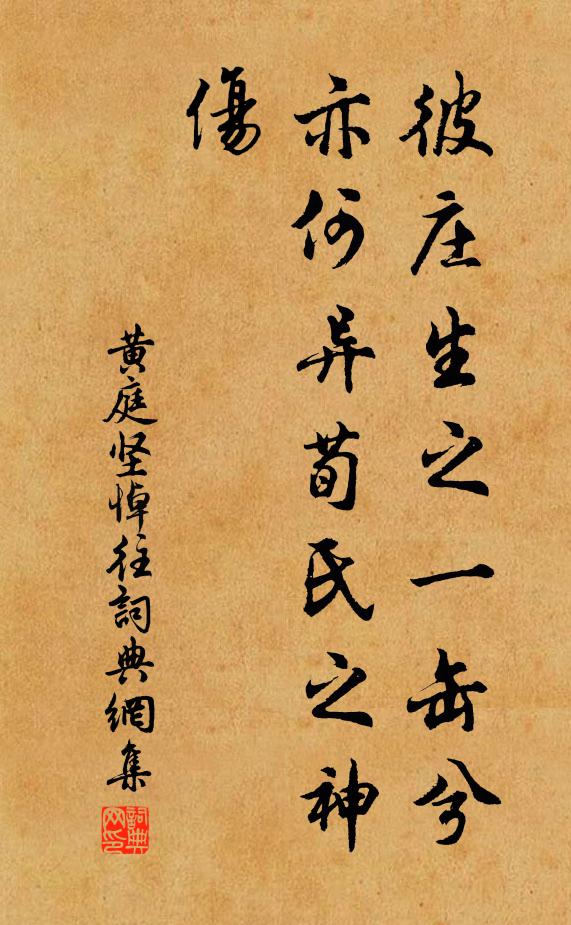 彼庄生之一缶兮
亦何异荀氏之神
傷
黄庭坚悼往詞典網集
詞典
网印